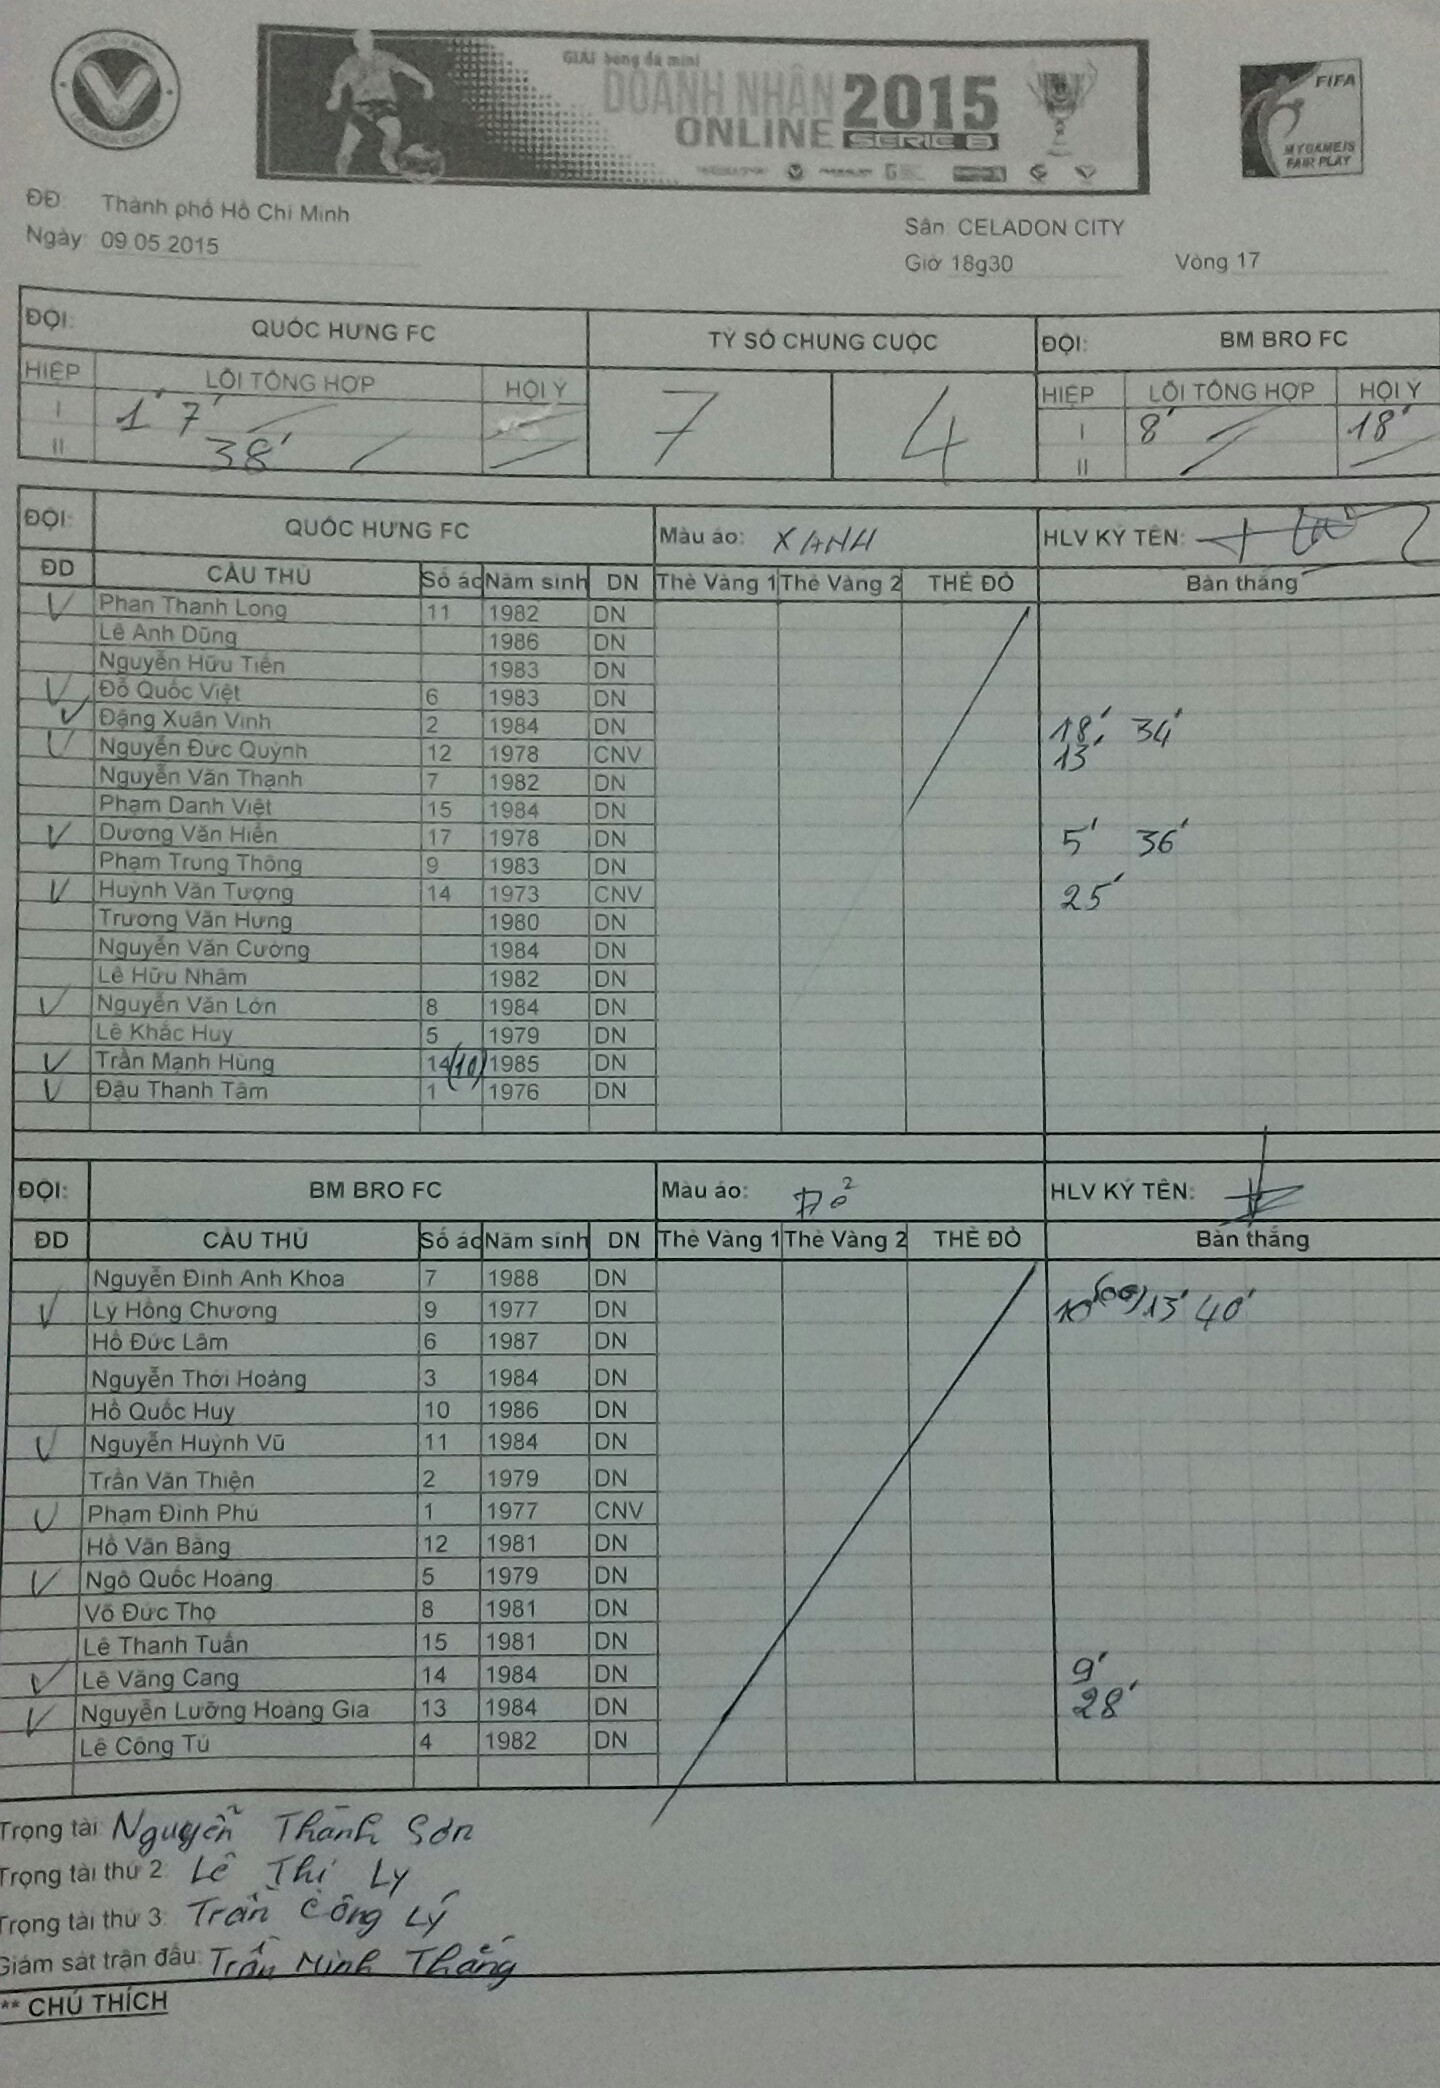 GIẢI bóng đá mini
DOANH NHÂN 2015
ONLINE SERIE B
FIFA
MY GAME IS
FAIR PLAY
ĐĐ: Thành phố Hồ Chí Minh
Sân: CELADON CITY
Ngày: 09.05.2015
Giờ 18g30 Vòng 17
ĐỘI: QUỐC HƯNG FC TỶ SỐ CHUNG CUỘC ĐỘI: BM BRO FC
HIỆP LỖI TỔNG HỢP HỘI Ý 7 4 HIỆP LỖI TỔNG HỢP HỘI Ý
I 1' 7' I 8' 18'
II 38' II
ĐỘI: QUỐC HƯNG FC Màu áo: XANH HLV KÝ TÊN:
ĐD CẦU THỦ Số áo Năm sinh DN Thẻ Vàng 1 Thẻ Vàng 2 THẺ ĐỎ Bàn thắng
V Phan Thanh Long 11 1982 DN
Lê Anh Dũng 1986 DN
Nguyễn Hữu Tiến 1983 DN
V Đỗ Quốc Việt 6 1983 DN
V Đặng Xuân Vinh 2 1984 DN 18' 34'
V Nguyễn Đức Quỳnh 12 1978 CNV 13'
Nguyễn Văn Thạnh 7 1982 DN
Phạm Danh Việt 15 1984 DN
V Dương Văn Hiển 17 1978 DN 5' 36'
Phạm Trung Thông 9 1983 DN
V Huỳnh Văn Tượng 14 1973 CNV 25'
Trương Văn Hưng 1980 DN
Nguyễn Văn Cường 1984 DN
Lê Hữu Nhâm 1982 DN
V Nguyễn Văn Lớn 8 1984 DN
Lê Khắc Huy 5 1979 DN
V Trần Mạnh Hùng 14 (10) 1985 DN
V Đậu Thanh Tâm 1 1976 DN
ĐỘI: BM BRO FC Màu áo: Đỏ HLV KÝ TÊN:
ĐD CẦU THỦ Số áo Năm sinh DN Thẻ Vàng 1 Thẻ Vàng 2 THẺ ĐỎ Bàn thắng
Nguyễn Đình Anh Khoa 7 1988 DN
V Lý Hồng Chương 9 1977 DN 10' (OG) 13' 40'
Hồ Đức Lâm 6 1987 DN
Nguyễn Thới Hoàng 3 1984 DN
Hồ Quốc Huy 10 1986 DN
V Nguyễn Huỳnh Vũ 11 1984 DN
Trần Văn Thiện 2 1979 DN
V Phạm Đình Phú 1 1977 CNV
Hồ Văn Băng 12 1981 DN
V Ngô Quốc Hoàng 5 1979 DN
Võ Đức Thọ 8 1981 DN
Lê Thanh Tuấn 15 1981 DN
V Lê Văng Cang 14 1984 DN 9'
V Nguyễn Lưỡng Hoàng Gia 13 1984 DN 28'
Lê Công Tú 4 1982 DN
Trọng tài: Nguyễn Thành Sơn
Trọng tài thứ 2: Lê Thị Ly
Trọng tài thứ 3: Trần Công Lý
Giám sát trận đấu: Trần Minh Thắng
** CHÚ THÍCH